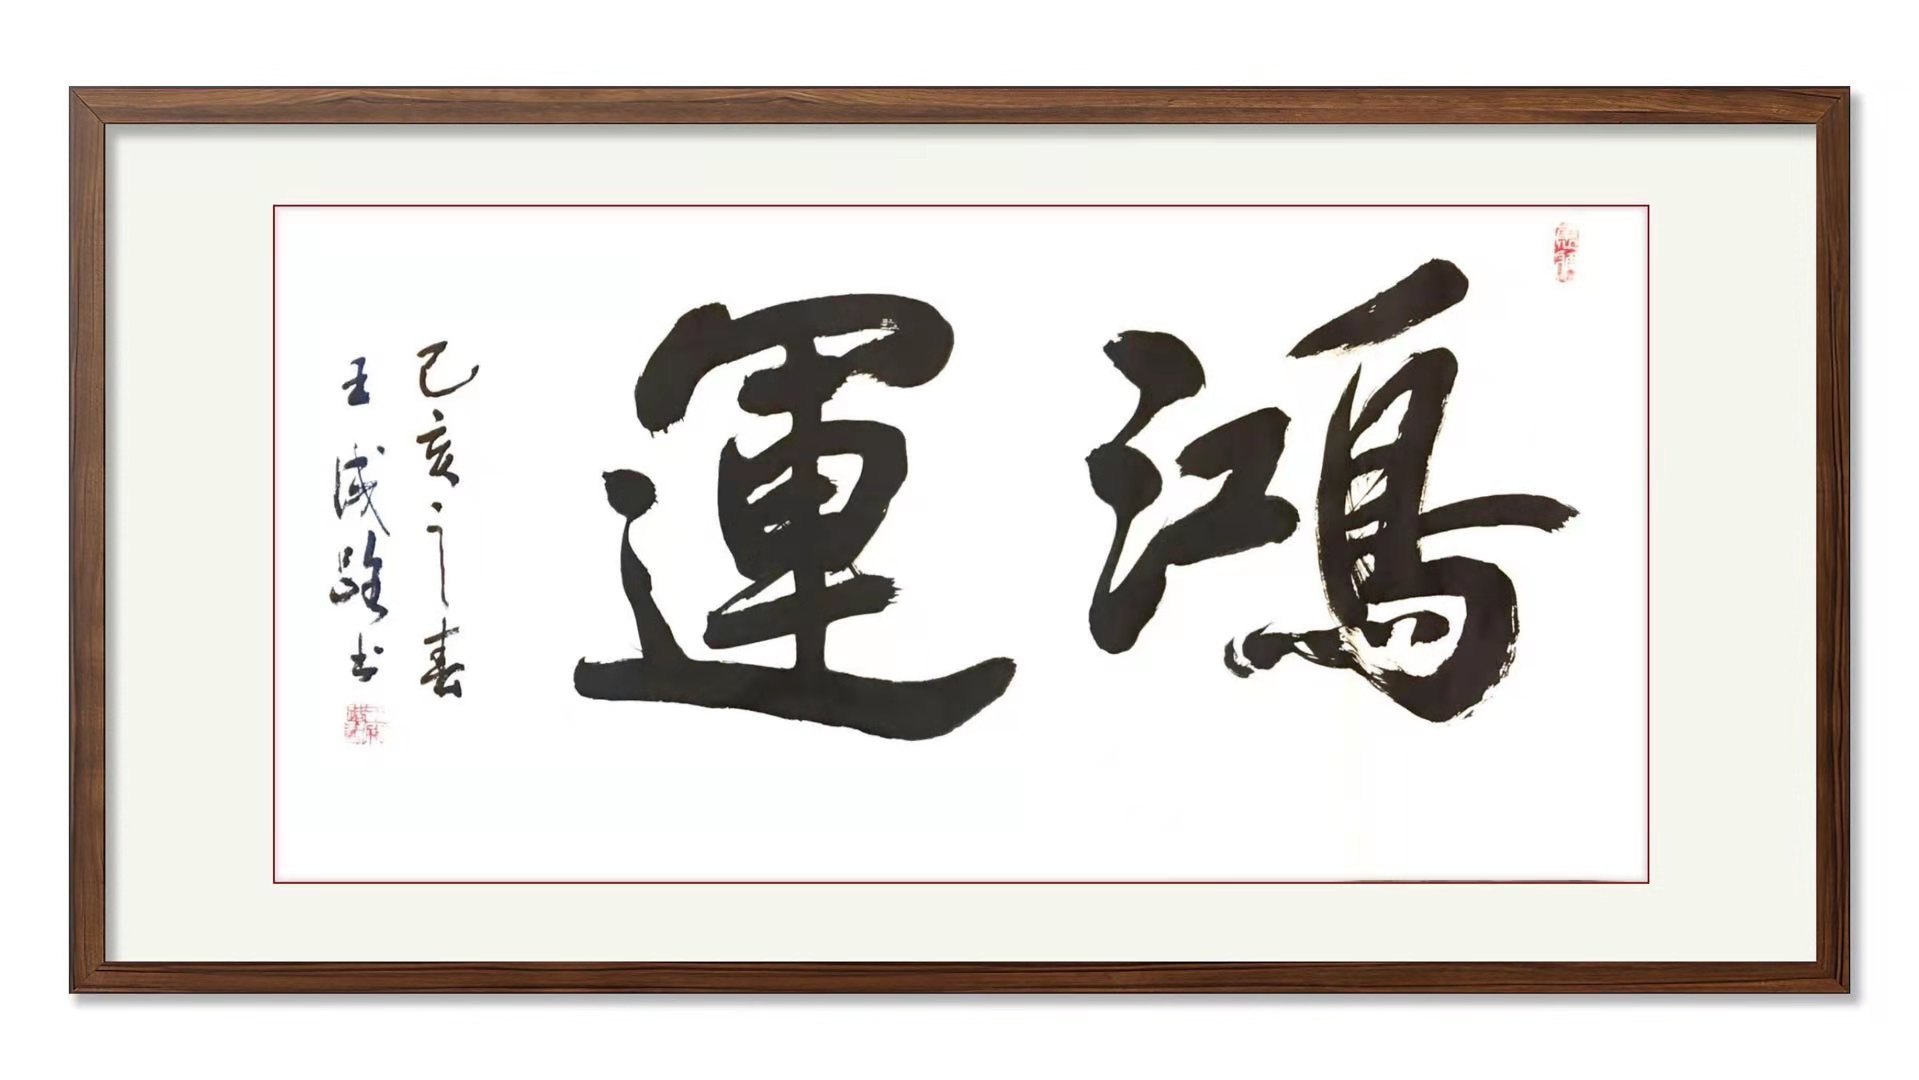 鴻運
己亥之春
王成路书